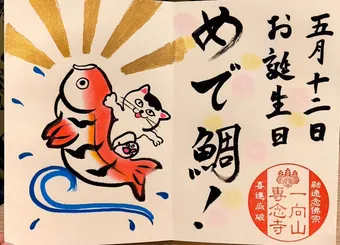 五月十二日
お誕生日
めで鯛!
融通念佛宗
一向山
専念寺
喜徳成破